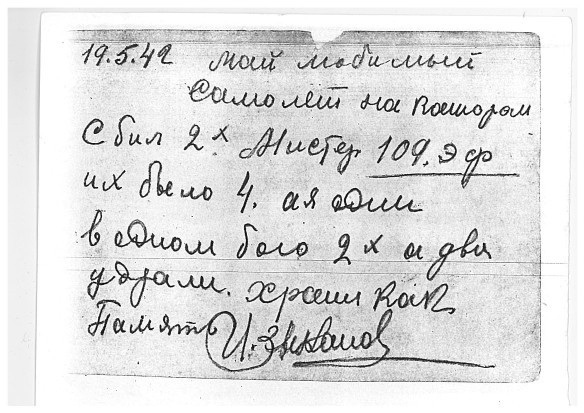 19.5.42 май любимый
самолет на котором
Сбил 2х Мистер 109. эф
их было 4. а я один
в одном бою 2х а два
удрали. храни как
Память И. Зыканов